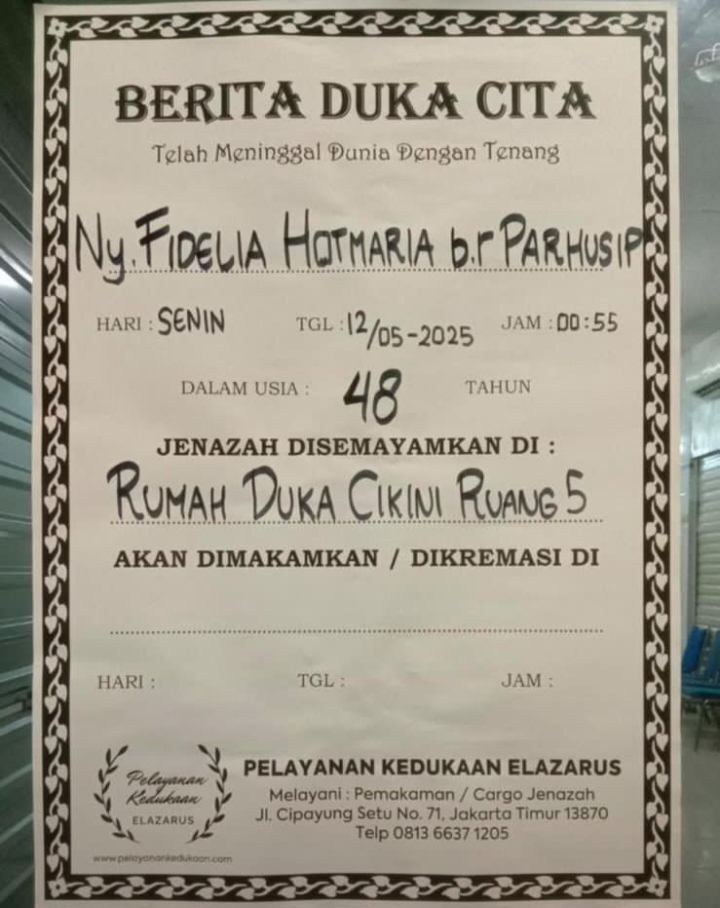 BERITA DUKA CITA
Telah Meninggal Dunia Dengan Tenang
Ny. FIDELIA HOTMARIA b.r PARHUSIP
HARI : SENIN TGL : 12/05-2025 JAM : 00:55
DALAM USIA : 48 TAHUN
JENAZAH DISEMAYAMKAN DI :
RUMAH DUKA CIKINI RUANG 5
AKAN DIMAKAMKAN / DIKREMASI DI
HARI : TGL : JAM :
Pelayanan
Kedukaan
ELAZARUS
www.pelayanankedukaan.com
PELAYANAN KEDUKAAN ELAZARUS
Melayani : Pemakaman / Cargo Jenazah
Jl. Cipayung Setu No. 71, Jakarta Timur 13870
Telp 0813 6637 1205